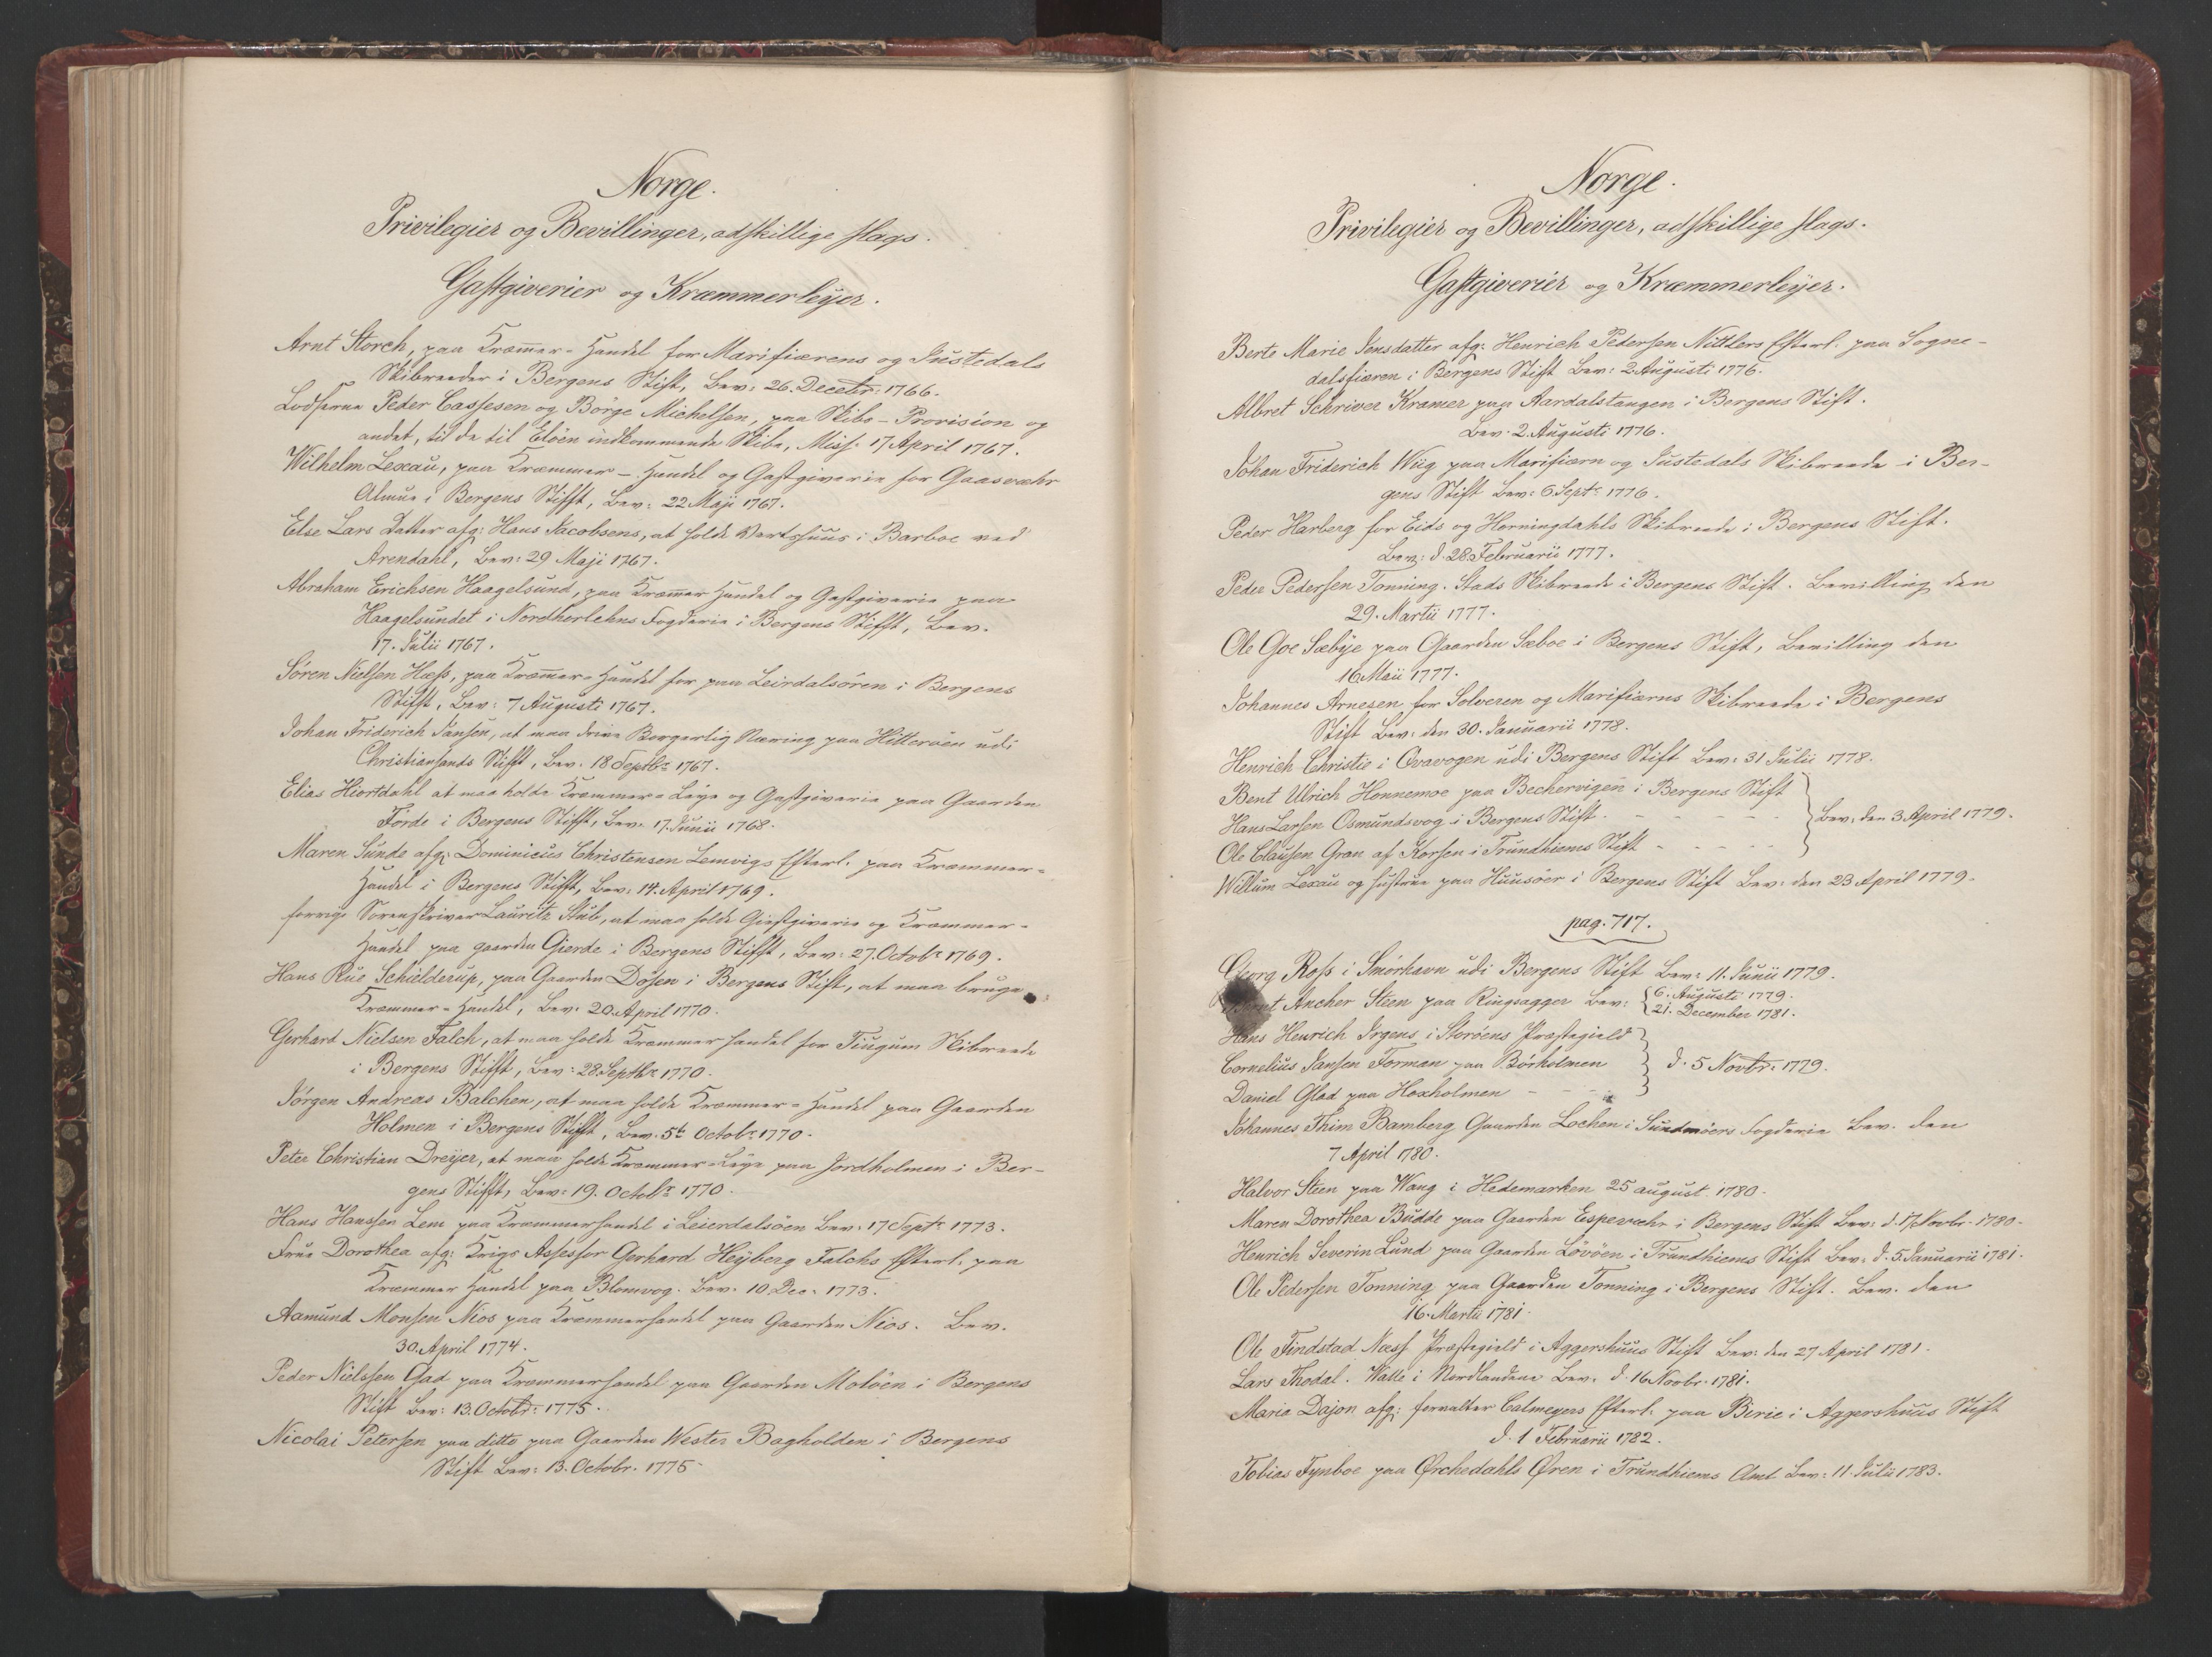 Norge.
Privilegier og Bevillinger, adskillige slags.
Gastgiverier og Kræmmerleyer.
Arnt Storch, paa Kræmer-Handel for Marifiærens og Justedals
Skibreeder i Bergens Stift, Bev: 26. Decetr: 1766.
Lodserne Peder Cassesen og Börge Michelsen, paa Skibs-Provision og
andet, til de til Elöen indkommende Skibe, Miss: 17 April 1767.
Wilhelm Lexau, paa Kræmmer-Handel og Gastgiverie for Gaasvæhr
Almue i Bergens Stifft, Bev: 22 Maji 1767.
Else Lars Datter afg: Hans Jacobsens, at holde Vertshuus i Barboe ved
Arendahl, Bev: 29 Maji 1767.
Abraham Erichsen Haagelsund, paa Kræmer Handel og Gastgiverie paa
Haagelsundet i Nordherlehns Fogderie i Bergens Stifft, Bev.
17. Julii 1767.
Sören Nielsen Hæss, paa Kræmer-Handel for paa Leirdalsören i Bergens
Stifft, Bev: 7 Augusti 1767.
Johan Friderich Jansen, at maa drive Borgerlig Næring paa Hitteröen udi
Christiansands Stifft, Bev. 18 Septbr 1767.
Elias Hiortdahl at maa holde Kræmmer-Leye og Gastgiverie paa Gaarden
Förde i Bergens Stifft, Bev. 17. Junii 1768.
Maren Sunde afg: Dominicus Christensen Lemvigs Efterl. paa Kræmmer-
Handel i Bergens Stifft, Bev: 14. April 1769.
forrige Sorenskriver Lauritz Stub, at maa holde Giestgiverie og Kræmmer-
Handel paa gaarden Gierde i Bergens Stifft, Bev: 27. Octobr 1769.
Hans Rue Schielderup, paa Gaarden Dösen i Bergens Stift, at maa bruge
Kræmmer-Handel, Bev: 20. April 1770.
Gerhard Nielsen Falch, at maa holde Kræmmer handel for Tiugum Skibreede
i Bergens Stifft, Bev: 28. Septbr 1770.
Jörgen Andreas Balchen, at maa holde Kræmmer-Handel paa Gaarden
Holmen i Bergens Stifft, Bev. 5te Octobr 1770.
Peter Christian Dreyer, at maa holde Kræmmer-Leye paa Jordholmen i Ber-
gens Stifft, Bev: 19. Octobr 1770.
Hans Hanssen Lem paa Kræmmerhandel i Leierdalsöen Bev: 17 Septr 1773.
Frue Dorothea afg: Krigs Assessor Gerhard Heyberg Falchs Efterl. paa
Kræmmer Handel paa Blomvog. Bev. 10. Dec. 1773.
Aamund Monsen Nios paa Kræmmerhandel paa Gaarden Nios. Bev.
30. April 1774.
Peder Nielssen Gad paa Kræmmerhandel paa Gaarden Molöen i Bergens
Stift Bev: 13. Octobr: 1775.
Nicolai Petersen paa ditto paa Gaarden Wester Bagholden i Bergens
Stift Bev: 13. Octobr. 1775
Norge.
Privilegier og Bevillinger, adskillige slags.
Gastgiverier og Kræmmerleyer.
Berte Marie Jensdatter afg: Henrich Pedersen Nittlers Efterl. paa Sogne-
dalsfiæren i Bergens Stift Bev: 2 Augusti 1776.
Albret Schriver Kramer paa Aardalstangen i Bergens Stift.
Bev: 2. Augusti 1776.
Johan Friderich Wiig paa Marifiærn og Justedals Skibreede i Ber-
gens Stift Bev: 6. Septr 1776.
Peder Harberg for Eids og Horningdahls Skibreede i Bergens Stift.
Bev: d. 28 Februarii 1777.
Peder Pedersen Tonning. Stads Skibreede i Bergens Stift. Bevilling den
29. Martii 1777.
Ole Goe Sæbye paa Gaarden Sæboe i Bergens Stift, Bevilling den
16 Maii 1777.
Johannes Arnesen for Solveren og Marifiærns Skibreede i Bergens
Stift Bev: den 30. Januarii 1778.
Henrich Christie i Qvavogen udi Bergens Stift Bev: 31 Julii 1778.
Bent Ulrich Honnemoe paa Bechervigen i Bergens Stift
Hans Larsen Osmundsvog i Bergens Stift. - - - - - Bev. den 3. April 1779.
Ole Clausen Gran af Korsen i Trundhiems Stift - - - - -
Willum Lexau og hustrue paa Huusöer i Bergens Stift Bev: den 23 April 1779.
pag. 717.
Georg Ross i Smörhavn udi Bergens Stift Bev: 11. Junii 1779.
Ancher Steen paa Ringsagger Bev: 6. Augusti 1779.
21. December 1781.
Hans Henrich Irgens i Storöens Præstegield
Cornelius Jansen Forman paa Börholmen d. 5 Novbr: 1779.
Daniel Glad paa Hoxholmen - - - -
Johannes Thim Bamberg Gaarden Lochen i Sundmöers Fogderie Bev. den
7 April 1780.
Halvor Steen paa Wang i Hedemarken 25 august 1780.
Maren Dorothea Budde paa Gaarden Espevæhr i Bergens Stift Bev: d. 17 Novbr. 1780.
Henrich Severin Lund paa Gaarden Lövöen i Trundhiems Stift Bev: d. 5. Januarii 1781.
Ole Pedersen Tonning paa Gaarden Tonning i Bergens Stift. Bev. den
16. Martii 1781.
Ole Findstad Næss Præstegield i Aggershuus Stift Bev: den 27 April 1781.
Lars Thodal. Walle i Nordlandene Bev. d. 16 Novbr. 1781.
Marie Dajon afg: forvalter Calmeyers Efterl. paa Birie i Aggershuus Stift
d. 1 Februarii 1782.
Tobias Fynboe paa Ørchedahls Øren i Trundhiems Amt Bev: 11. Julii 1783.